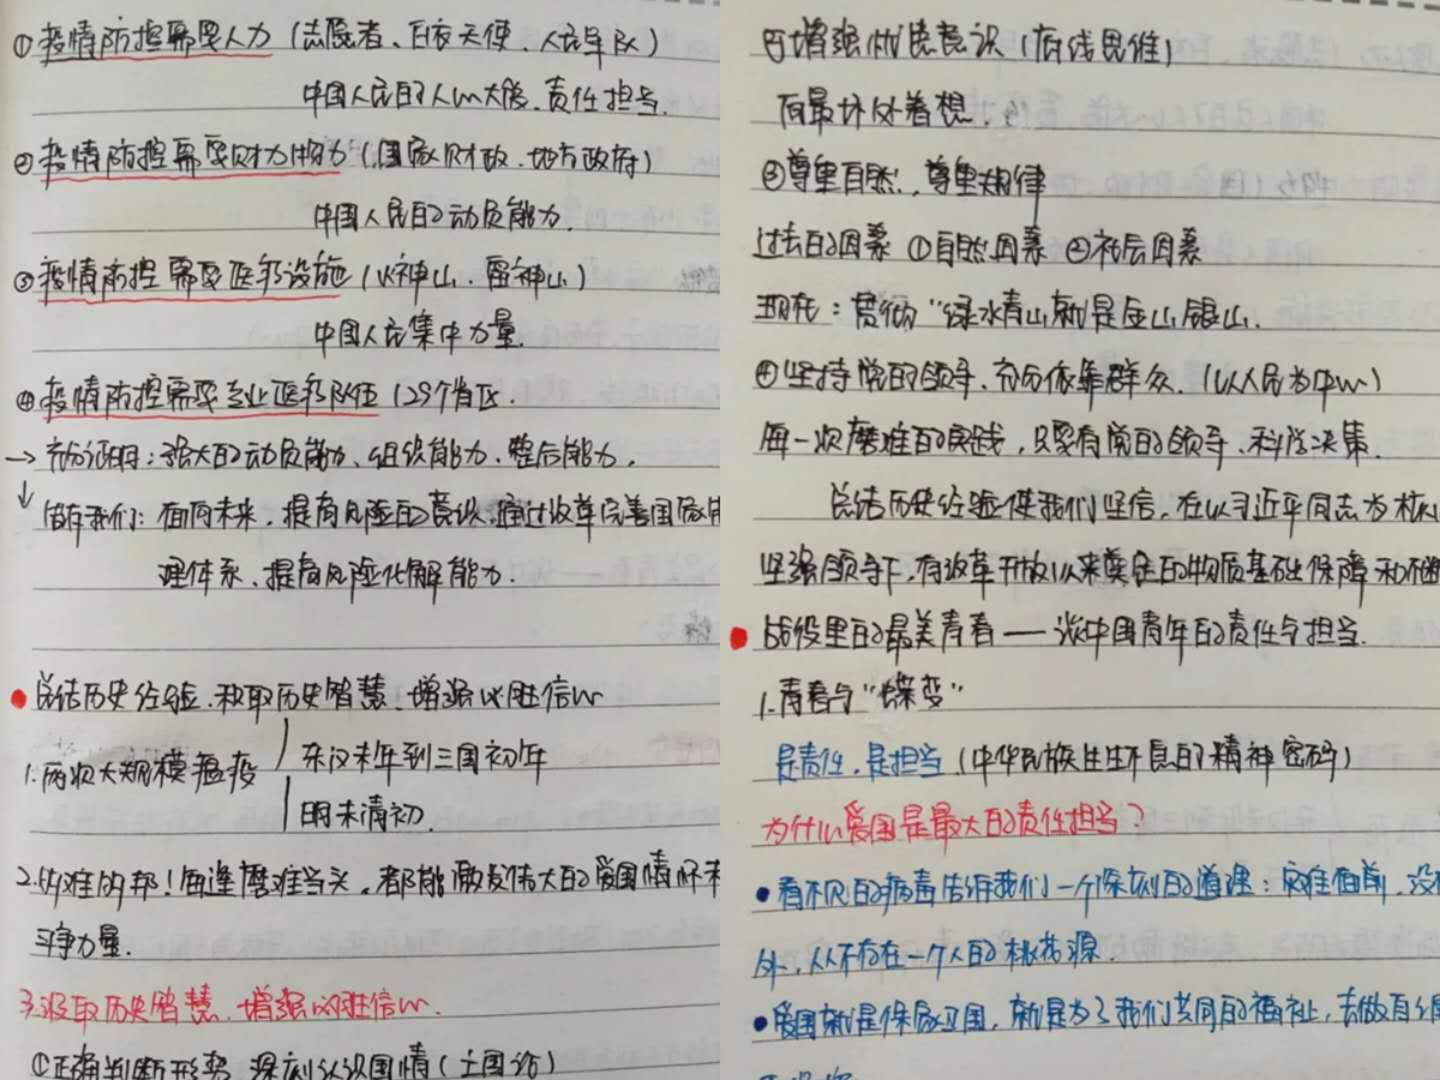 ①疫情防控需要人力（志愿者、白衣天使、人民军队）
中国人民的人心大信、责任担当.
②疫情防控需要财力物力（国家财政、地方政府）
中国人民的动员能力.
③疫情防控需要医疗设施（火神山、雷神山）
中国人民集中力量.
④疫情防控需要专业医疗队伍（29个省区.
→充分证明：强大的动员能力、组织能力、整合能力.
↓告诉我们：面向未来，提高风险的意识，通过改革完善国家
理体系、提高风险化解能力.
●总结历史经验.积取历史智慧、增强必胜信心
1.两次大规模瘟疫 东汉末年到三国初年
明末清初.
2.多难兴邦！每逢磨难当头，都能激发伟大的爱国情怀
斗争力量.
3.汲取历史智慧、增强必胜信心.
①正确判断形势 深刻认识国情（土国论）
②增强忧患意识（底线思维）
向最坏处着想.
③尊重自然，尊重规律
过去的因素 ①自然因素 ②社会因素
现在：贯彻"绿水青山就是金山银山.
④坚持党的领导、充分依靠群众.（以人民为中心）
每一次磨难的实践，只要有党的领导、科学决策.
总结历史经验使我们坚信，在以习近平同志为核心
坚强领导下，有改革开放以来奠定的物质基础保障和不断
●战役里的最美青春——谈中国青年的责任与担当.
1.青春与"蝶变"
是责任，是担当（中华民族生生不息的精神密码）
为什么爱国是最大的责任担当？
●看不见的病毒告诉我们一个深刻的道理：灾难面前，没
外，从不存在一个人的桃花源.
●爱国就是保家卫国，就是为了我们共同的福祉，去做自己